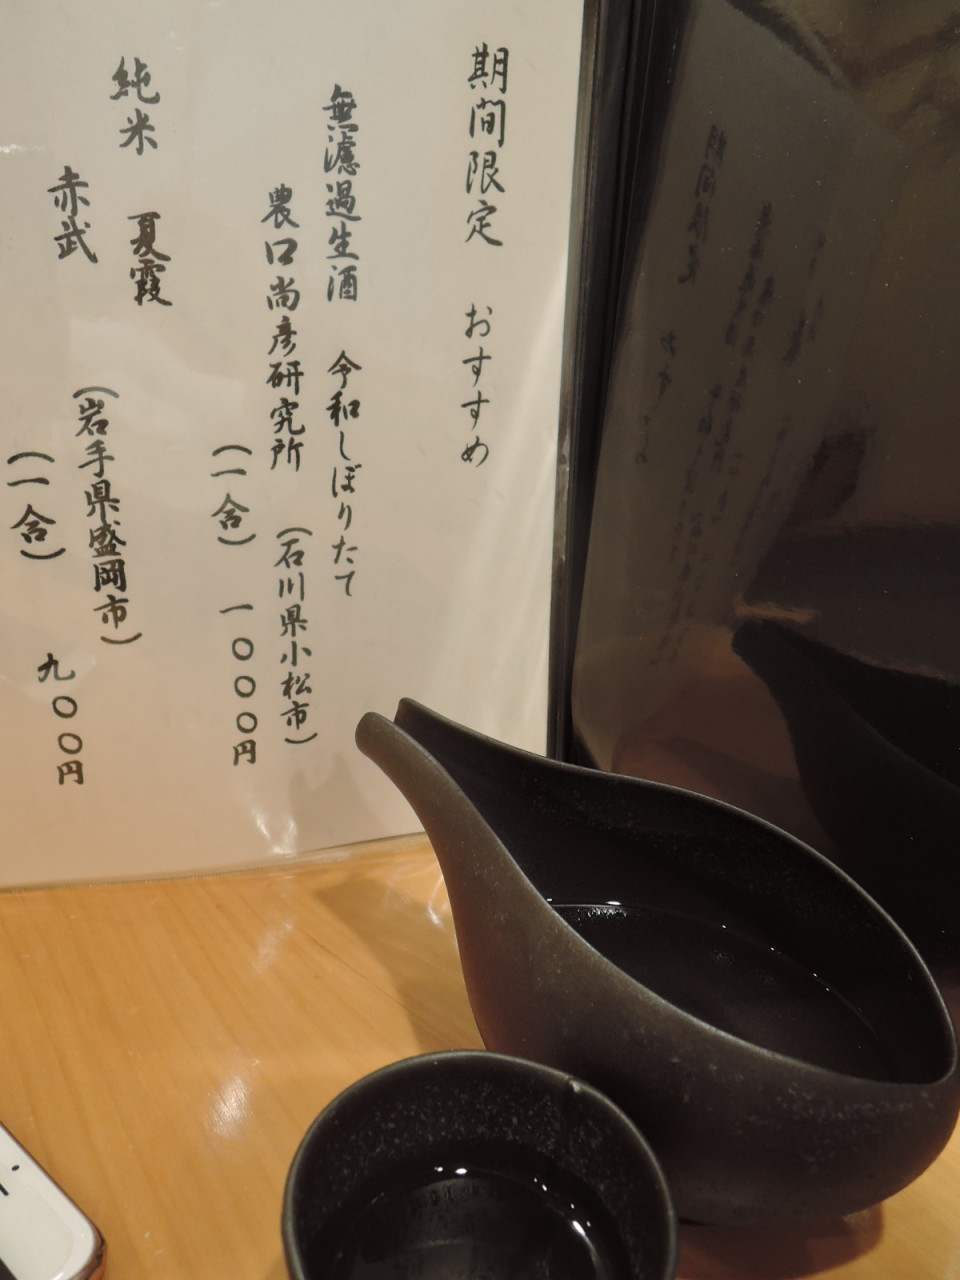 期間限定　おすすめ
無濾過生酒　令和しぼりたて
農口尚彦研究所　（石川県小松市）
（一合）　一〇〇〇円
純米　夏霞
赤武　（岩手県盛岡市）
（一合）　九〇〇円